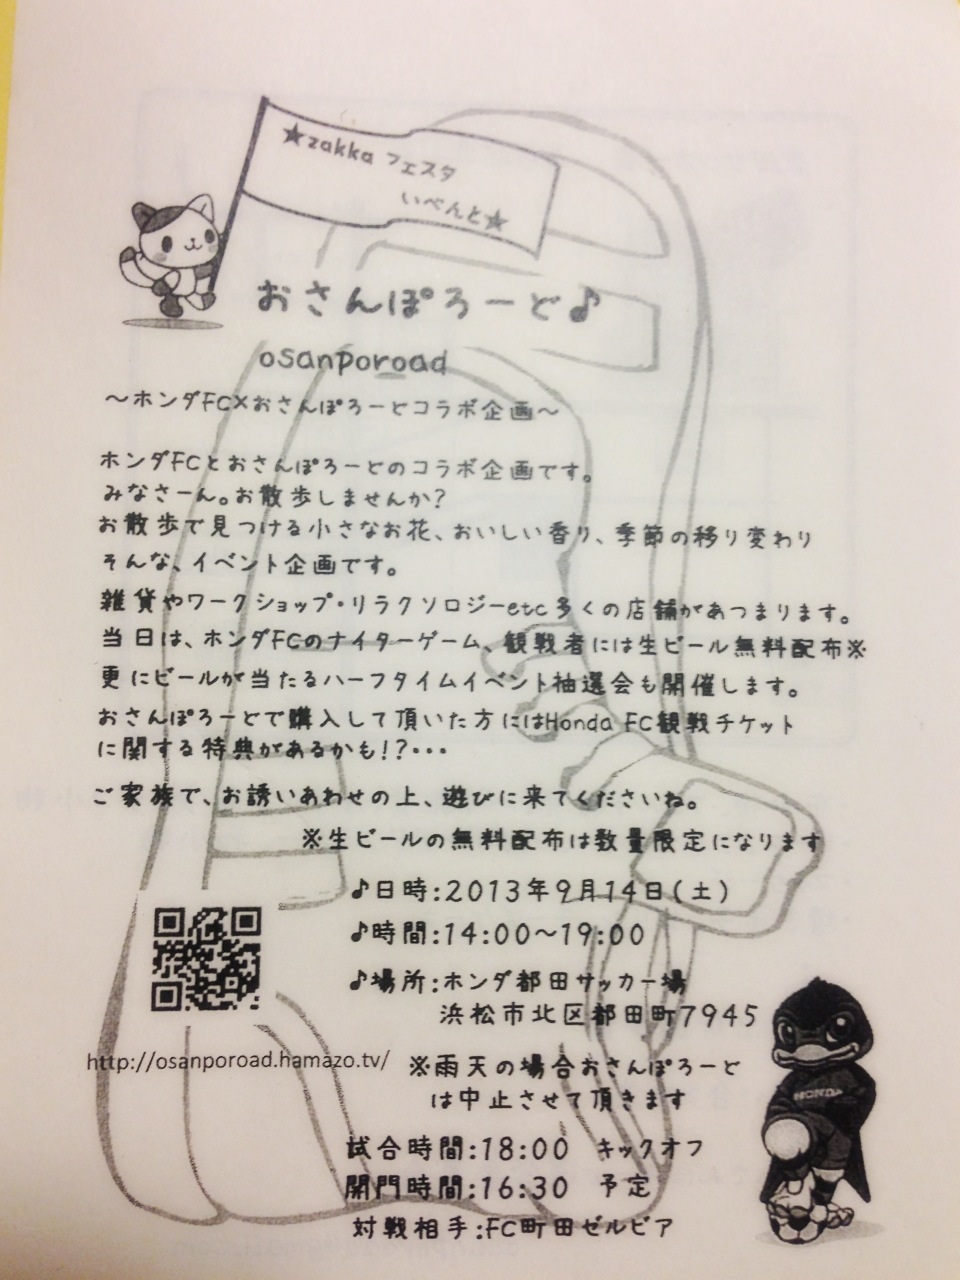 ★zakka フェスタ
いべんと★
おさんぽろーど♪
osanporoad
～ホンダFC×おさんぽろーどコラボ企画～
ホンダFCとおさんぽろーどのコラボ企画です。
みなさーん。お散歩しませんか?
お散歩で見つける小さなお花、おいしい香り、季節の移り変わり
そんな、イベント企画です。
雑貨やワークショップ・リラクソロジーetc多くの店舗があつまります。
当日は、ホンダFCのナイターゲーム、観戦者には生ビール無料配布※
更にビールが当たるハーフタイムイベント抽選会も開催します。
おさんぽろーどで購入して頂いた方にはHonda FC観戦チケット
に関する特典があるかも!?・・・
ご家族で、お誘いあわせの上、遊びに来てくださいね。
※生ビールの無料配布は数量限定になります
♪日時:2013年9月14日(土)
♪時間:14:00～19:00
♪場所:ホンダ都田サッカー場
浜松市北区都田町7945
http://osanporoad.hamazo.tv/
※雨天の場合おさんぽろーど
は中止させて頂きます
試合時間:18:00 キックオフ
開門時間:16:30 予定
対戦相手:FC町田ゼルビア
HONDA